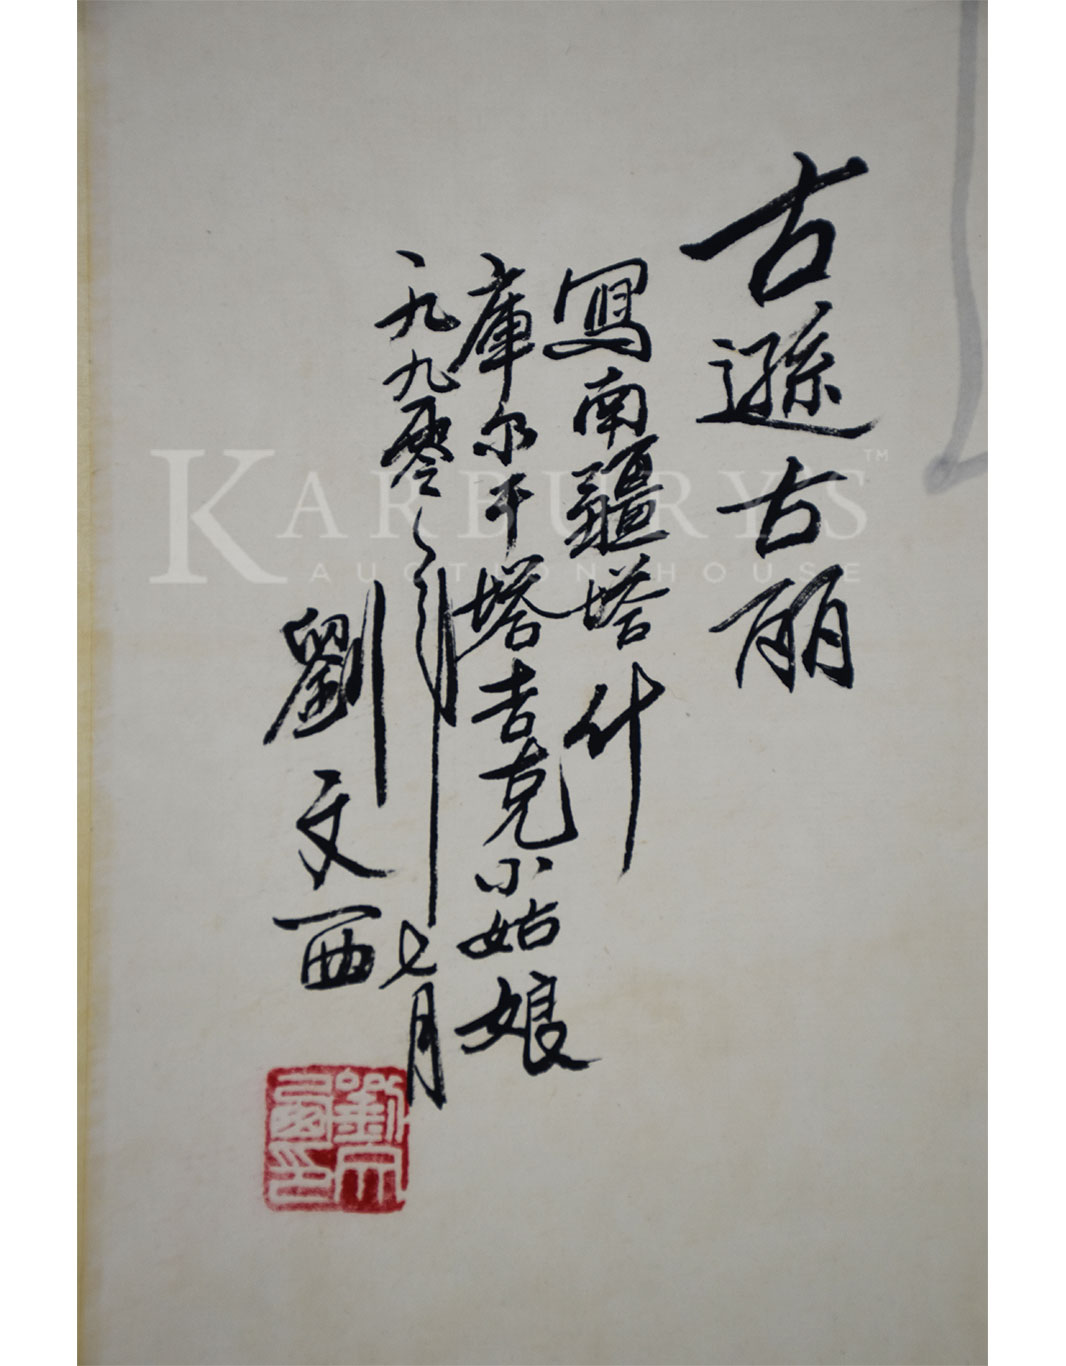 古遜古丽
寫南疆塔什
庫尔干塔吉克小姑娘
一九九零年七月
劉文西
劉文西印
KARBURY'S™
AUCTION HOUSE